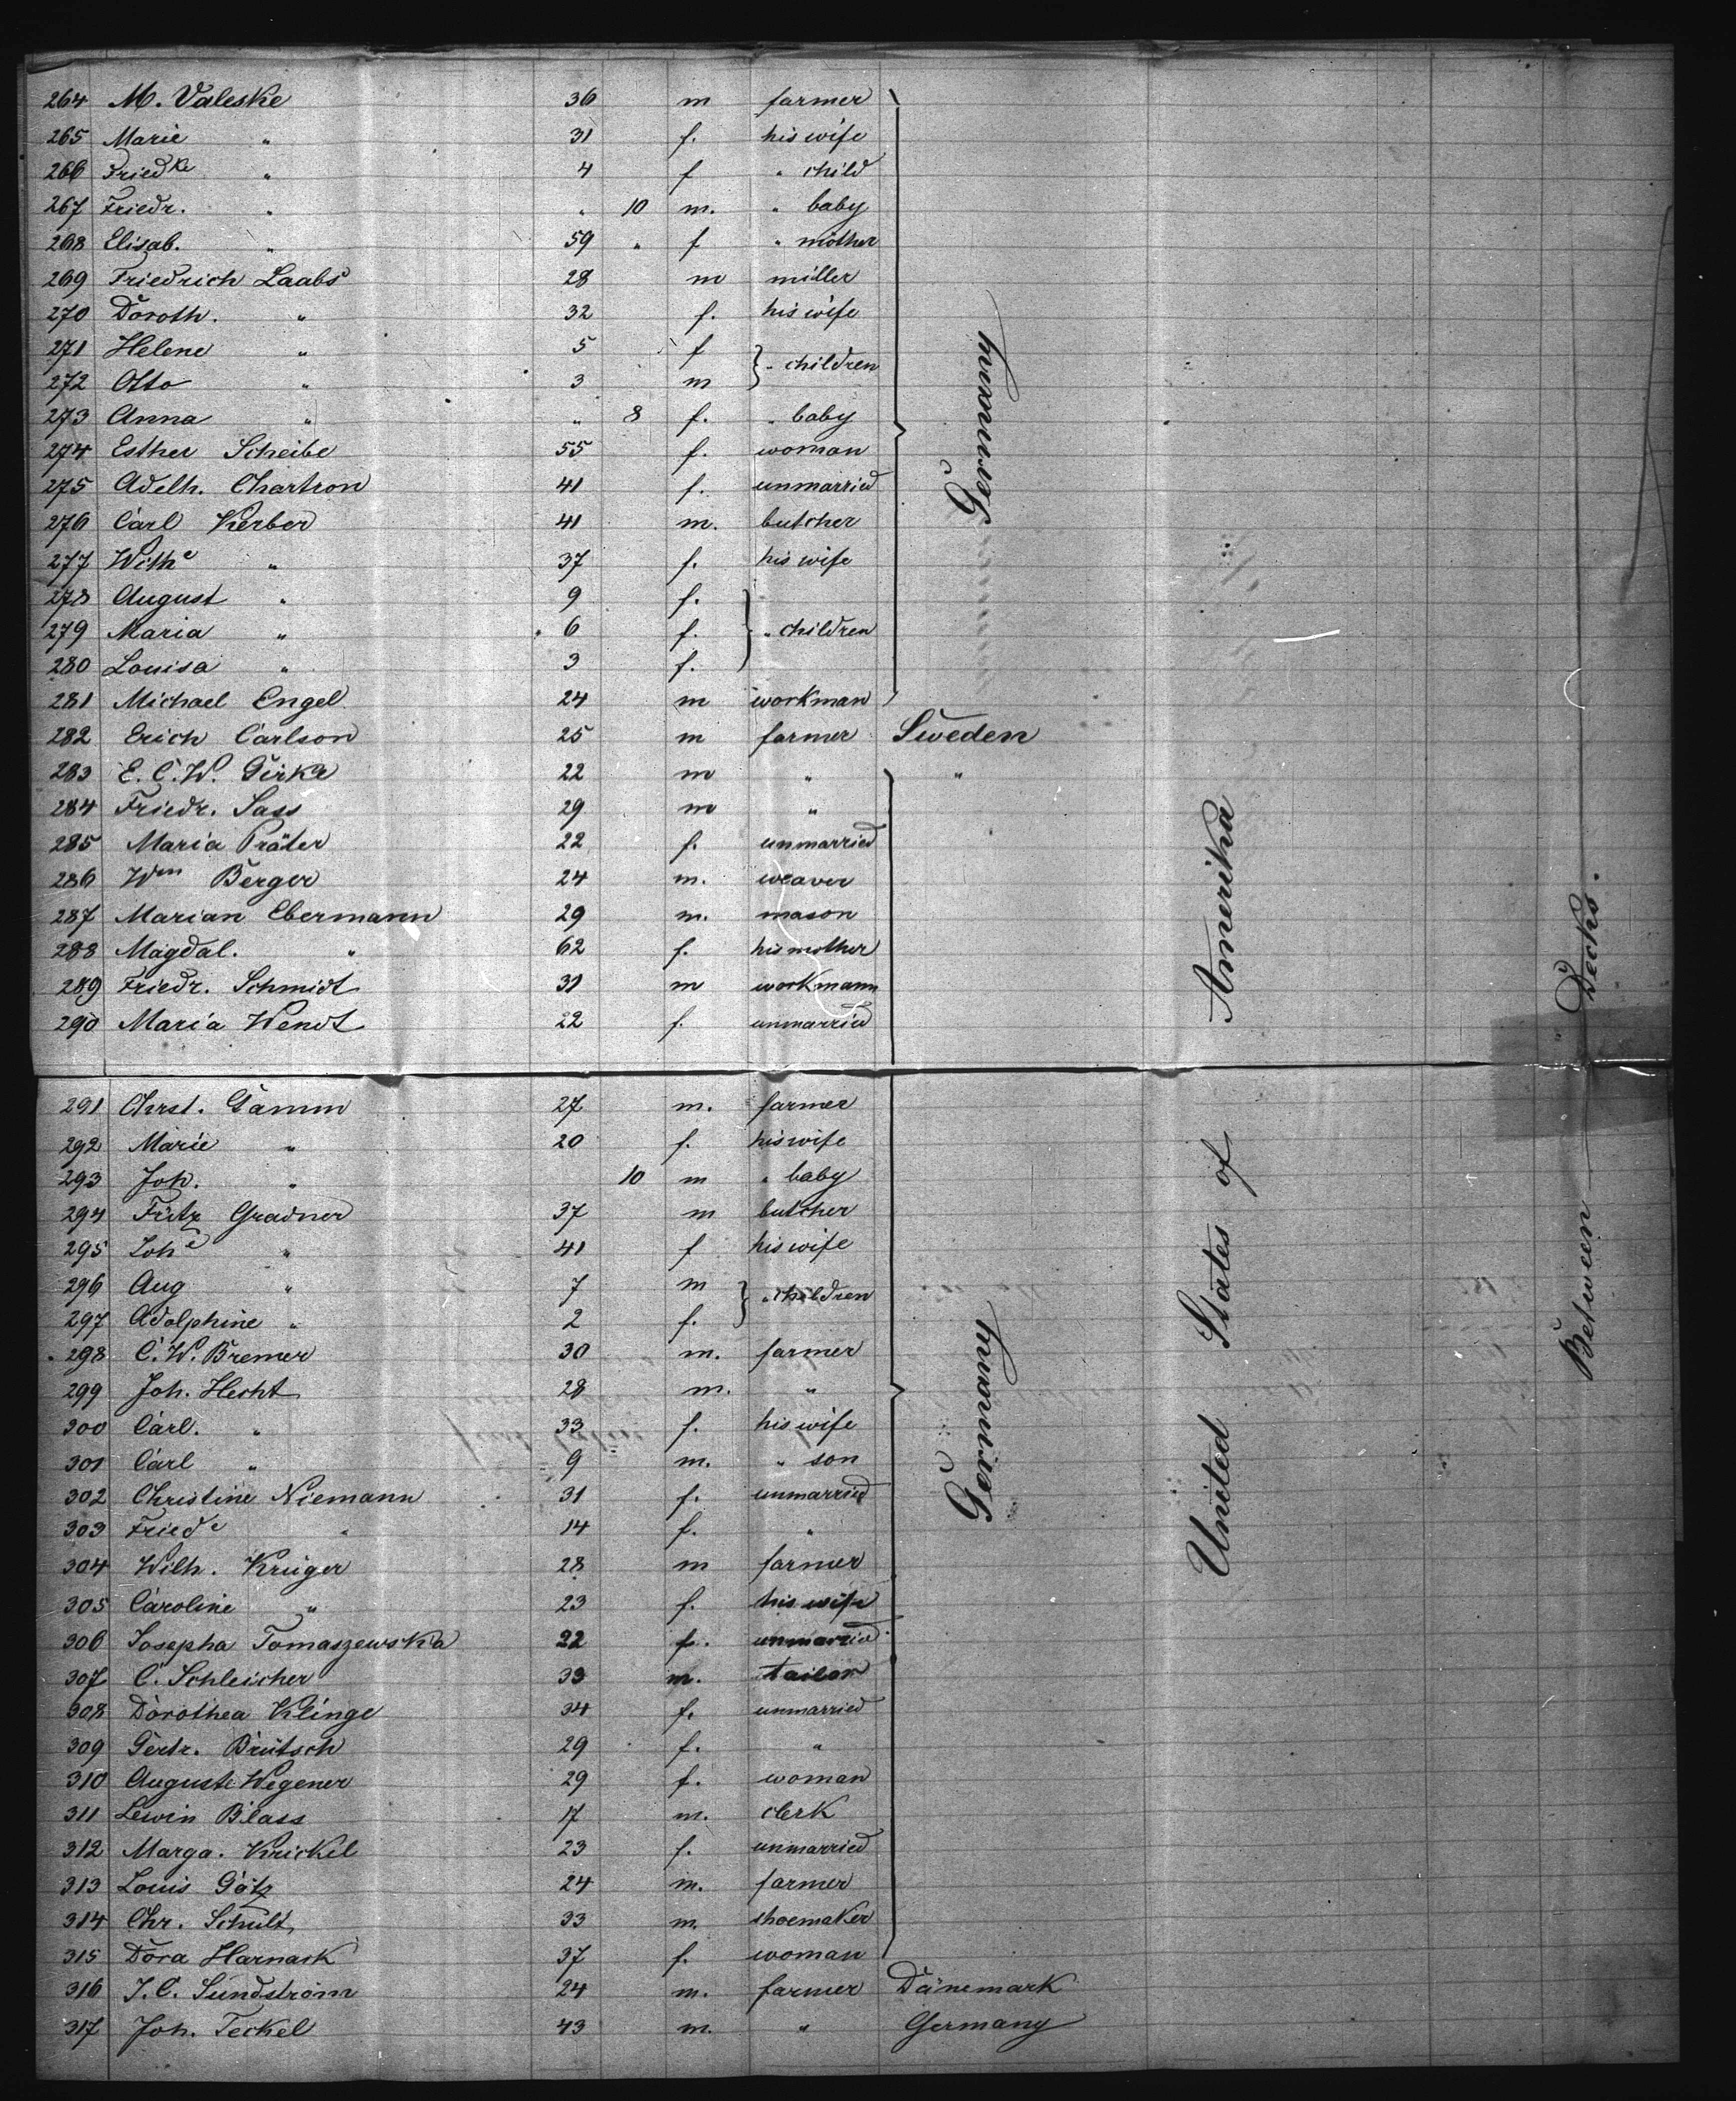 264 M. Valeske 36 m farmer
265 Marie " 31 f. his wife
266 Friedke " 4 f " child
267 Friedr. " " 10 m. " baby
268 Elisab. " 59 " f " mother
269 Friedrich Laabs 28 m miller
270 Doroth. " 32 f. his wife
271 Helene " 5 f
" children
272 Otto " 3 m
273 Anna " " 8 f. " baby
274 Esther Scheibe 55 f. woman
275 Adelh. Chartron 41 f. unmarried
276 Carl Kerber 41 m. butcher
277 Withe " 37 f. his wife
278 August " 9 f.
279 Maria " 6 f. " children
280 Louisa " 3 f.
281 Michael Engel 24 m workman
Germany
282 Erich Carlson 25 m farmer Sweden
283 E. C. W. Girke 22 m " "
284 Friedr. Sass 29 m "
285 Maria Präter 22 f. unmarried
286 Wm Berger 24 m. weaver
287 Marian Ebermann 29 m. mason
288 Magdal. " 62 f. his mother
289 Friedr. Schmidt 31 m workmann
290 Maria Wendt 22 f. unmarried
291 Chrst. Gamm 27 m. farmer
292 Marie " 20 f. his wife
293 Joh. " 10 m " baby
294 Fritz Gradner 37 m butcher
295 Johe " 41 f his wife
296 Aug " 7 m
" children
297 Adolphine " 2 f.
298 C. W. Bremer 30 m. farmer
299 Joh. Hecht 28 m. "
300 Carl. " 33 f. his wife
301 Carl " 9 m. " son
302 Christine Niemann 31 f. unmarried
303 Friede " 14 f. "
304 Wilh. Krüger 28 m farmer
305 Caroline " 23 f. his wife
306 Josepha Tomaszewska 22 f. unmarried
307 C. Schleicher 33 m. tailor
308 Dorothea Klinge 34 f. unmarried
309 Gertr. Brütsch 29 f. "
310 Auguste Wegener 29 f. woman
311 Lewin Blass 17 m. clerk
312 Marga. Krickel 23 f. unmarried
313 Louis Götz 24 m. farmer
314 Chr. Schult 33 m. shoemaker
315 Dora Harnack 37 f. woman
Germany
316 J. C. Sundström 24 m. farmer Dänemark
317 Joh. Teckel 43 m. " Germany
United States of Amerika
Between Decks.